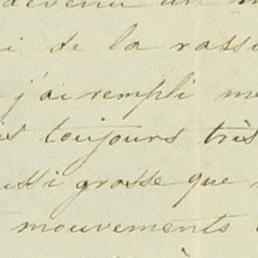 devenu un
i de la rassu
j'ai rempli me
is toujours très
ussi grosse que
mouvements